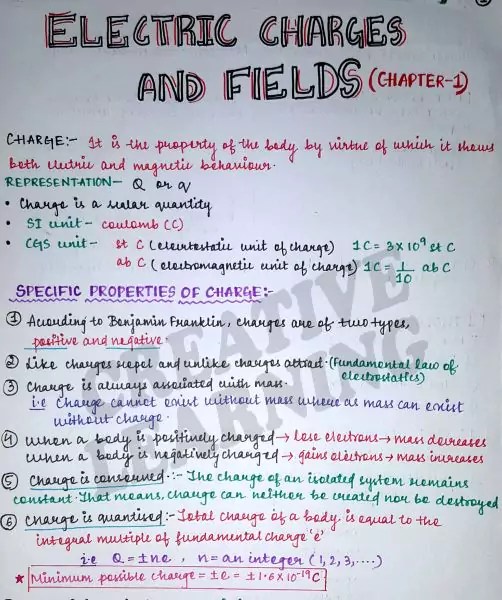 ELECTRIC CHARGES
AND FIELDS (CHAPTER-1)
CHARGE:- It is the property of the body by virtue of which it shows
both electric and magnetic behaviour.
REPRESENTATION- Q or q
• Charge is a scalar quantity
• SI unit- coulomb (C)
• CGS unit- st C (electrostatic unit of charge) 1C = 3×10⁹ st C
ab C (electromagnetic unit of charge) 1C = 1/10 ab C
SPECIFIC PROPERTIES OF CHARGE:-
① According to Benjamin Franklin, charges are of two types,
positive and negative.
② Like charges repel and unlike charges attract. (Fundamental law of
electrostatics)
③ Charge is always associated with mass.
i.e Charge cannot exist without mass where as mass can exist
without charge.
④ when a body is positively charged → lose electrons → mass decreases
when a body is negatively charged → gains electrons → mass increases
⑤ Charge is conserved:- The charge of an isolated system remains
constant. That means, charge can neither be created nor be destroyed
⑥ charge is quantised:- Total charge of a body is equal to the
integral multiple of fundamental charge 'e'
i.e Q = ±ne, n = an integer (1,2,3,....)
★ Minimum possible charge = ±e = ±1.6×10⁻¹⁹C
CREATIVE
LEARNING